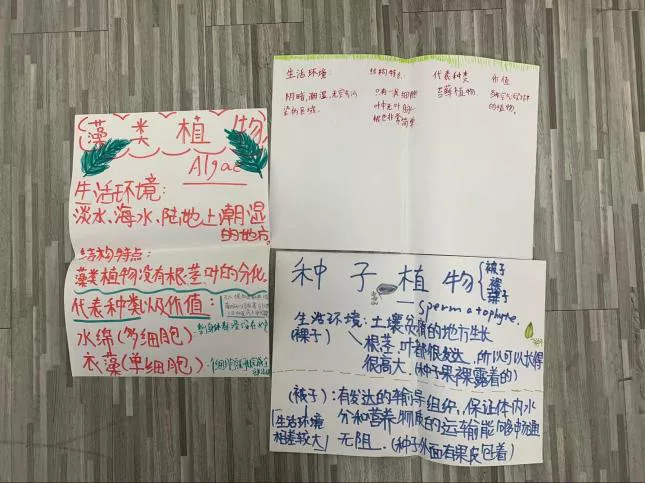 藻类植物
Algae
生活环境:
淡水、海水、陆地上潮湿
的地方
结构特点:
藻类植物没有根茎叶的分化。
代表种类以及价值:
水绵(多细胞)
衣藻(单细胞)
生活环境:
阴暗,潮湿,无空气污
染的区域。
结构特点:
只有一层细胞
叶中无叶脉
根也非常简单
代表种类
苔藓植物
价值
的植物。
种子植物
被子
裸子
Spermatophyte.
生活环境:土壤分贫瘠的地方生长
(裸子)
根茎、叶都很发达,所以可以长得
很高大。(种子果裸露着的)
(被子):有发达的输导组织,保证体内水
生活环境
相差较大
分和营养物质的运输能够畅通
无阻。(种子外面有果皮包着)